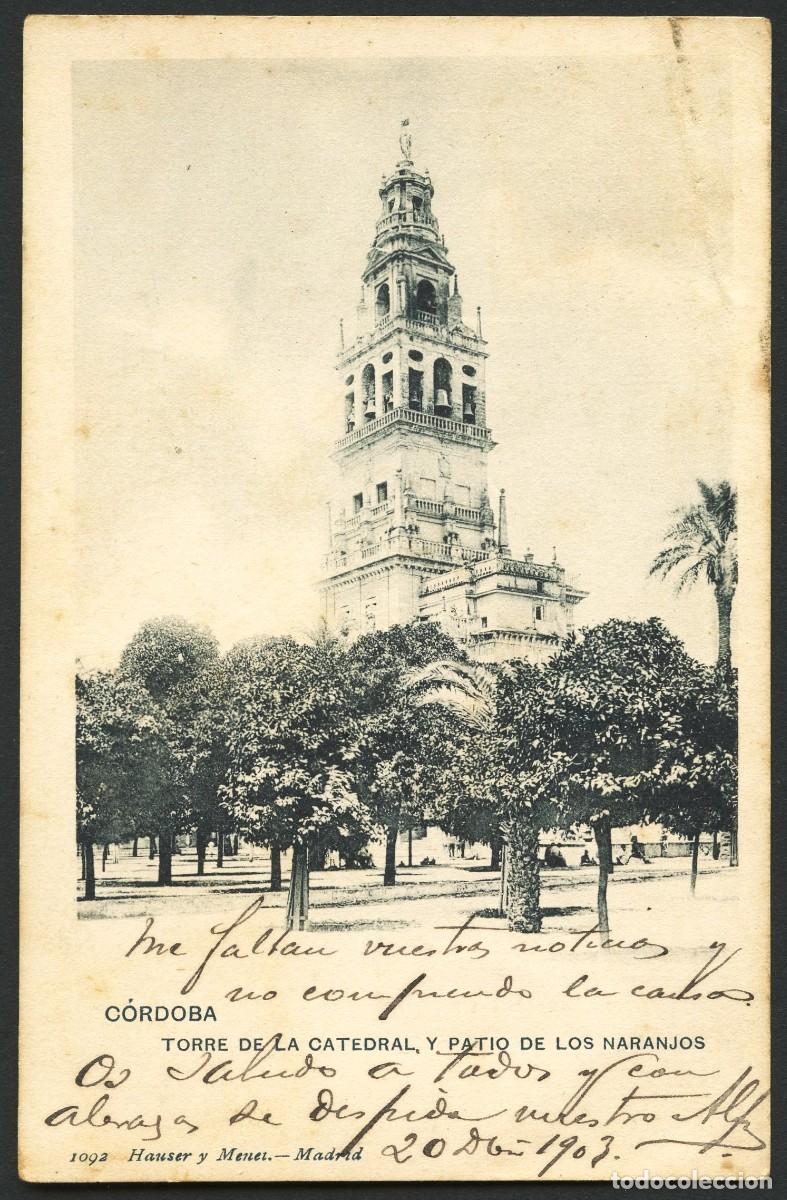 Me faltan vuestras noticias y
no comprendo la causa.
CÓRDOBA
TORRE DE LA CATEDRAL Y PATIO DE LOS NARANJOS
Os saludo a todos y con
abrazos se despide vuestro
1092 Hauser y Menet.—Madrid
20 Dbre 1903.
todocoleccion